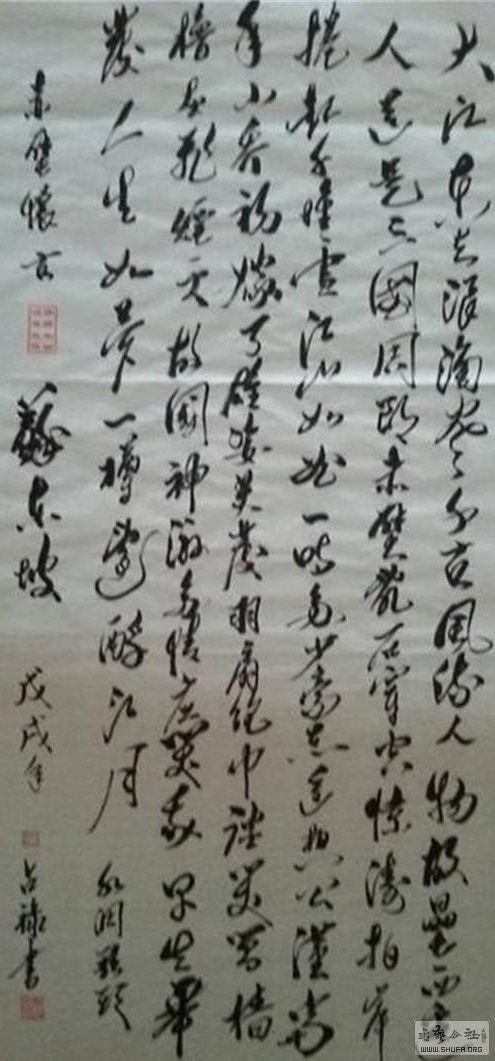 大江东去浪淘尽千古風流人物故壘西
人道是三國周郎赤壁乱石穿空惊濤拍岸
捲起千堆雪江山如画一时多少豪杰遥想公瑾當
年小乔初嫁了雄姿英發羽扇纶巾談笑間樯
櫓灰飛煙灭故國神游多情應笑我早生華
發人生如夢一樽還酹江月
赤壁懷古
蘇东坡
戊戌年
占禄書
書法公社
WWW.SHUFA.ORG